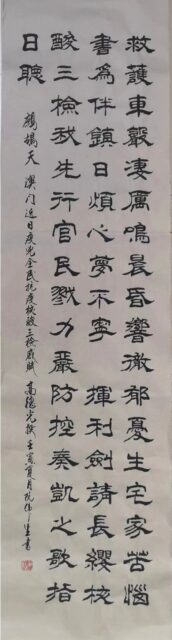 救護車聲凄厲鳴晨昏響徹郁憂生宅家苦惱
書為伴鎮日煩心夢不寧 揮利劍請長纓核
酸三檢我先行官民戮力嚴防控奏凱之歌指
日聽
鷓鴣天 澳门近日疫兇全民抗疫核酸三檢感賦 高德光撰 壬寅夏月阮偉生書